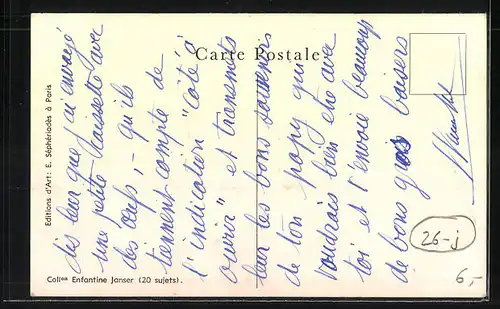 Carte Postale
Editions d'Art: E. Séphériadès à Paris
Colion Enfantine Janser (20 sujets).
dis leur que j'ai envoyé
une petite caissette avec
des œufs, - qu'ils
tiennent compte de
l'indication "côté à
ouvrir" et transmets
leur les bons souvenirs
de ton papy qui
voudrais bien être avec
toi et t'envoie beaucoup
de bons gros baisers
26-j
6,-